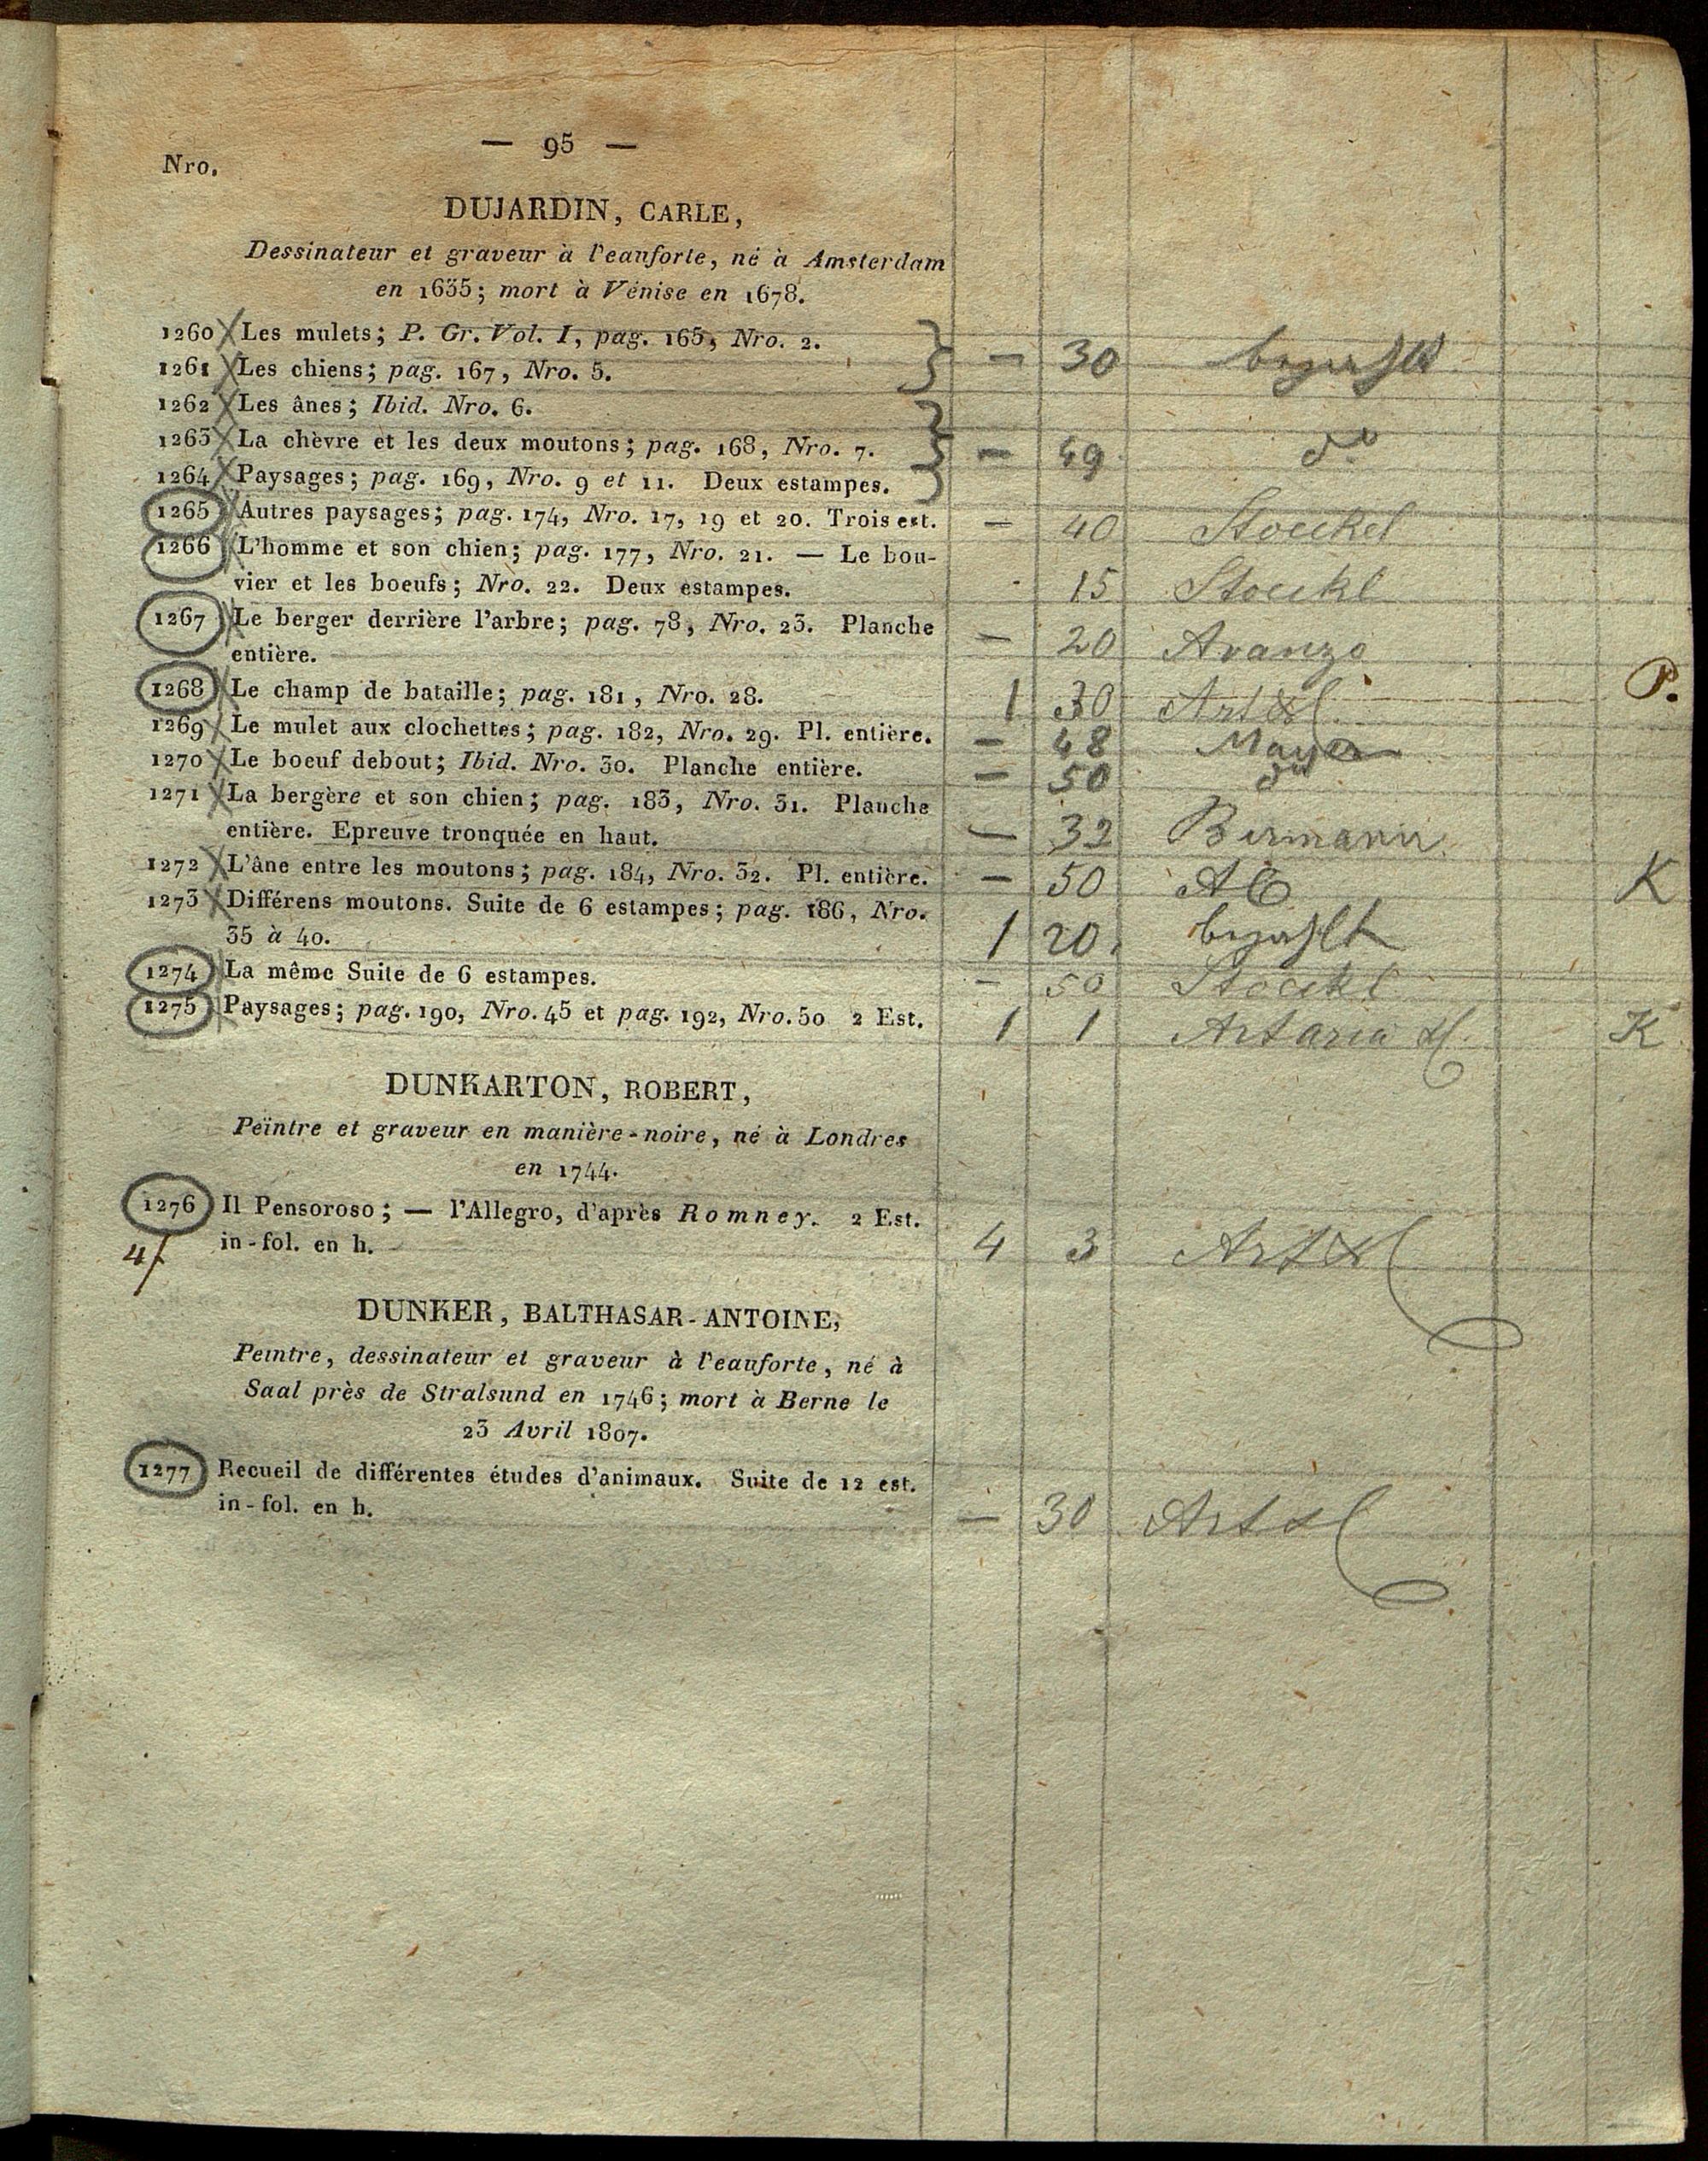 — 95 —
Nro.
DUJARDIN, CARLE,
Dessinateur et graveur à l'eauforte, né à Amsterdam
en 1635; mort à Vénise en 1678.
1260 Les mulets; P. Gr. Vol. I, pag. 165, Nro. 2.
1261 Les chiens; pag. 167, Nro. 5. — 30 bezahlt
1262 Les ânes; Ibid. Nro. 6.
1263 La chèvre et les deux moutons; pag. 168, Nro. 7. — 49 do
1264 Paysages; pag. 169, Nro. 9 et 11. Deux estampes.
1265 Autres paysages; pag. 174, Nro. 17, 19 et 20. Trois est. — 40 Stockel
1266 L'homme et son chien; pag. 177, Nro. 21. — Le bou-
vier et les boeufs; Nro. 22. Deux estampes. 15 Stockl
1267 Le berger derrière l'arbre; pag. 78, Nro. 23. Planche — 20 Avanzo
entière.
1268 Le champ de bataille; pag. 181, Nro. 28. 1 30 Art & P.
1269 Le mulet aux clochettes; pag. 182, Nro. 29. Pl. entière. — 48 Mayer
1270 Le boeuf debout; Ibid. Nro. 30. Planche entière. — 50 do
1271 La bergère et son chien; pag. 183, Nro. 31. Planche
entière. Epreuve tronquée en haut. — 32 Bermann
1272 L'âne entre les moutons; pag. 184, Nro. 32. Pl. entière. — 50 K
1273 Différens moutons. Suite de 6 estampes; pag. 186, Nro.
35 à 40. 1 20 bezahlt
1274 La même Suite de 6 estampes. — 50 Stockl
1275 Paysages; pag. 190, Nro. 45 et pag. 192, Nro. 50 2 Est. 1 1 Artaria & K
DUNKARTON, ROBERT,
Peïntre et graveur en manière-noire, né à Londres
en 1744.
1276 Il Pensoroso; — l'Allegro, d'après Romney. 2 Est.
4f in-fol. en h. 4 3 Art &
DUNKER, BALTHASAR-ANTOINE,
Peintre, dessinateur et graveur à l'eauforte, né à
Saal près de Stralsund en 1746; mort à Berne le
23 Avril 1807.
1277 Recueil de différentes études d'animaux. Suite de 12 est.
in-fol. en h. — 30 Art &